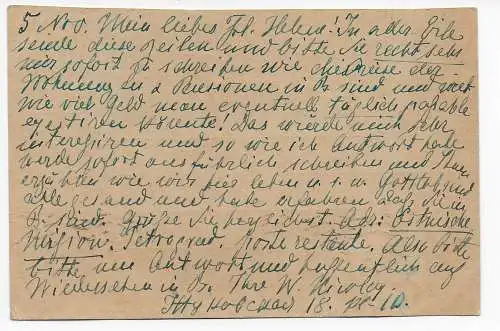 5 Nov. Mein liebes Frl. Helene! In aller Eile
sende diese Zeilen und bitte Sie recht sehr
mir sofort zu schreiben wie die Preise der
Wohnungen & Pensionen in sind und
wie viel Geld man eventuell täglich
existiren könnte! Das würde mich sehr
interessiren und so wie ich Antwort habe
werde sofort ausführlich schreiben und Ihnen
erzählen wie wir hier leben u. s. w. Gottlob sind
alle gesund und habe erfahren dass Sie in
sind. Grüsse Sie herzlichst. Ads: Estnische
Mission. Petrograd. Poste restante. Also bitte
bitte um Antwort und hoffentlich auf
Wiedersehen in Ihre W.
18.